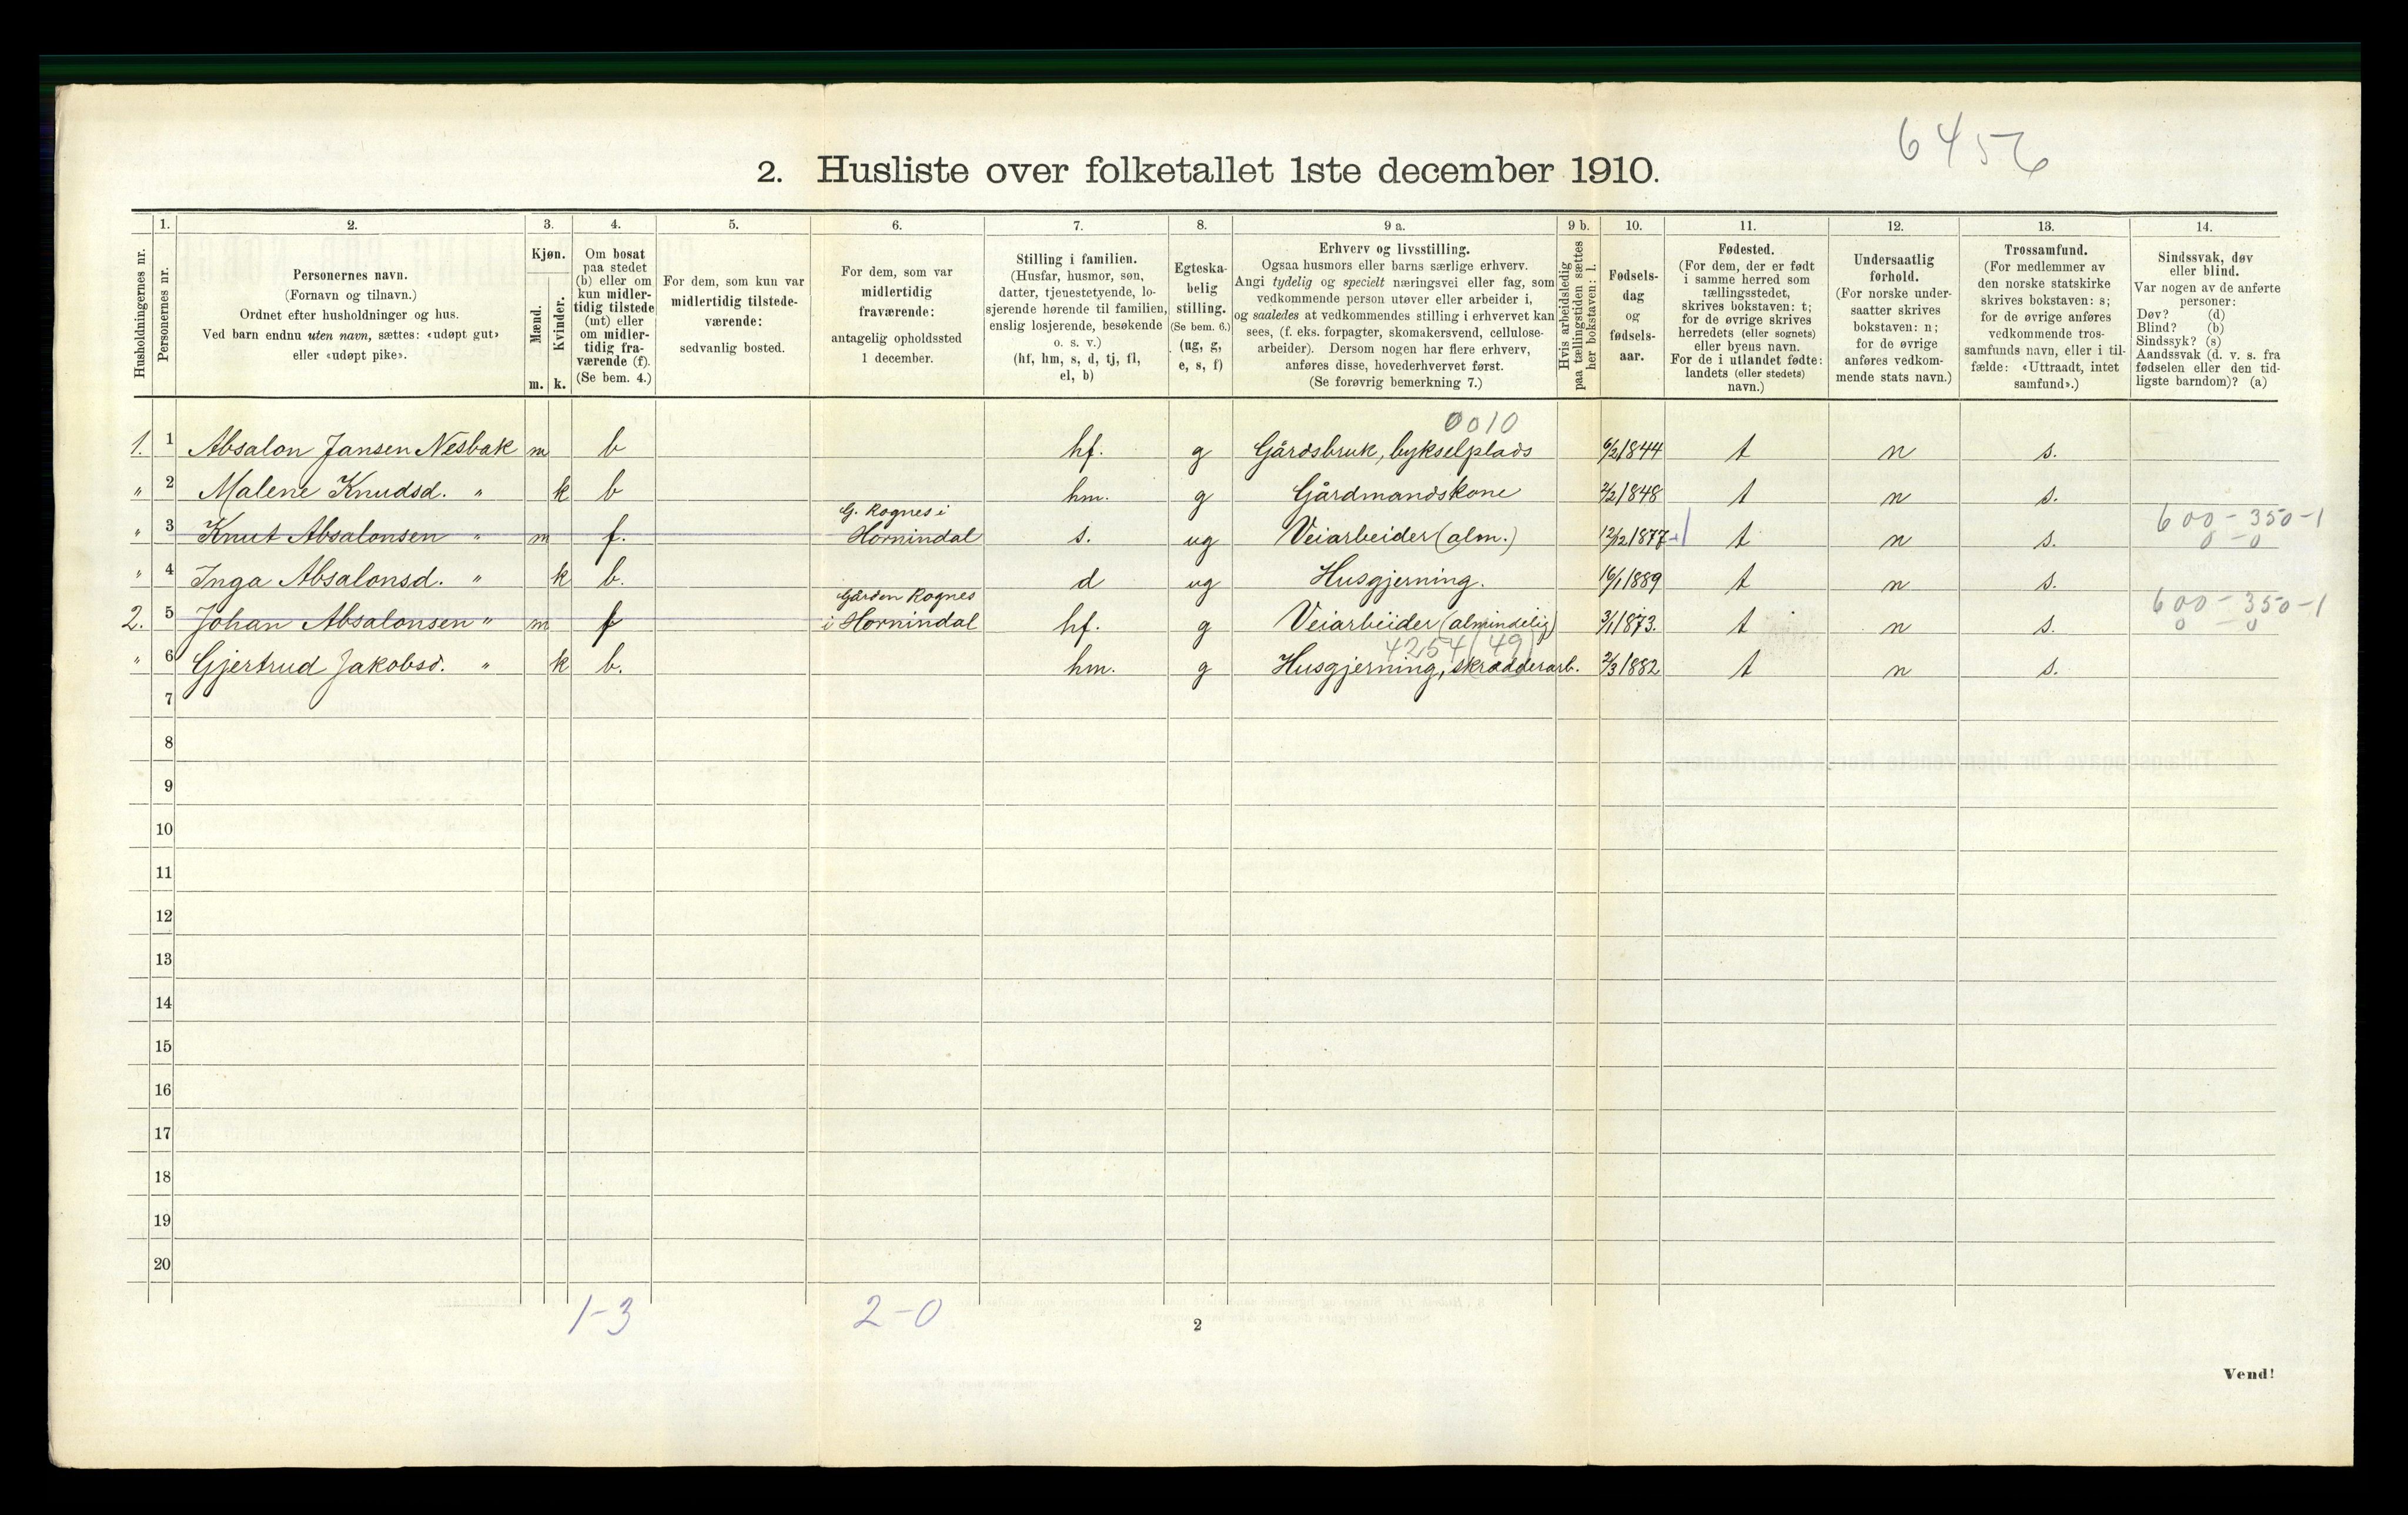 6456
2. Husliste over folketallet 1ste december 1910.
Husholdningernes nr.
1.
Personernes nr.
2.
Personernes navn.
(Fornavn og tilnavn.)
Ordnet efter husholdninger og hus.
Ved barn endnu uten navn, sættes: «udøpt gut»
eller «udøpt pike».
3.
Kjøn.
Mænd.
Kvinder.
m. k.
4.
Om bosat
paa stedet
(b) eller om
kun midler-
tidig tilstede
(mt) eller
om midler-
tidig fra-
værende (f).
(Se bem. 4.)
5.
For dem, som kun var
midlertidig tilstede-
værende:
sedvanlig bosted.
6.
For dem, som var
midlertidig
fraværende:
antagelig opholdssted
1 december.
7.
Stilling i familien.
(Husfar, husmor, søn,
datter, tjenestetyende, lo-
sjerende hørende til familien,
enslig losjerende, besøkende
o. s. v.)
(hf, hm, s, d, tj, fl,
el, b)
8.
Egteska-
belig
stilling.
(Se bem. 6.)
(ug, g,
e, s, f)
9 a.
Erhverv og livsstilling.
Ogsaa husmors eller barns særlige erhverv.
Angi tydelig og specielt næringsvei eller fag, som
vedkommende person utøver eller arbeider i,
og saaledes at vedkommendes stilling i erhvervet kan
sees, (f. eks. forpagter, skomakersvend, cellulose-
arbeider). Dersom nogen har flere erhverv,
anføres disse, hovederhvervet først.
(Se forøvrig bemerkning 7.)
9 b.
Hvis arbeidsledig
paa tællingstiden sættes
her bokstaven: l.
10.
Fødsels-
dag
og
fødsels-
aar.
11.
Fødested.
(For dem, der er født
i samme herred som
tællingsstedet,
skrives bokstaven: t;
for de øvrige skrives
herredets (eller sognets)
eller byens navn.
For de i utlandet fødte:
landets (eller stedets)
navn.)
12.
Undersaatlig
forhold.
(For norske under-
saatter skrives
bokstaven: n;
for de øvrige
anføres vedkom-
mende stats navn.)
13.
Trossamfund.
(For medlemmer av
den norske statskirke
skrives bokstaven: s;
for de øvrige anføres
vedkommende tros-
samfunds navn, eller i til-
fælde: «Uttraadt, intet
samfund».)
14.
Sindssvak, døv
eller blind.
Var nogen av de anførte
personer:
Døv? (d)
Blind? (b)
Sindssyk? (s)
Aandssvak (d. v. s. fra
fødselen eller den tid-
ligste barndom)? (a)
0010
1. 1 Absalon Jansen Nesbak m b hf. g Gårdsbruk, bykselplads 6/2 1844 t n s.
" 2 Malene Knudsd. " k b hm. g Gårdmandskone 2/2 1848 t n s.
G. Rognes i 600-350-1
" 3 Knut Absalonsen " m f. Hornindal s. ug Veiarbeider (alm.) 12/12 1877 t n s. 0-0
" 4 Inga Absalonsd. " k b. d ug Husgjerning. 16/1 1889 t n s.
Gården Rognes 600-350-1
2. 5 Johan Absalonsen " m f i Hornindal hf. g Veiarbeider (almindelig) 3/1 1873. t n s. 0-0
4254 (49)
" 6 Gjertrud Jakobsd. " k b. hm. g Husgjerning, skrædderarb. 2/3 1882 t n s.
7
8
9
10
11
12
13
14
15
16
17
18
19
20
1-3 2-0
2
Vend!